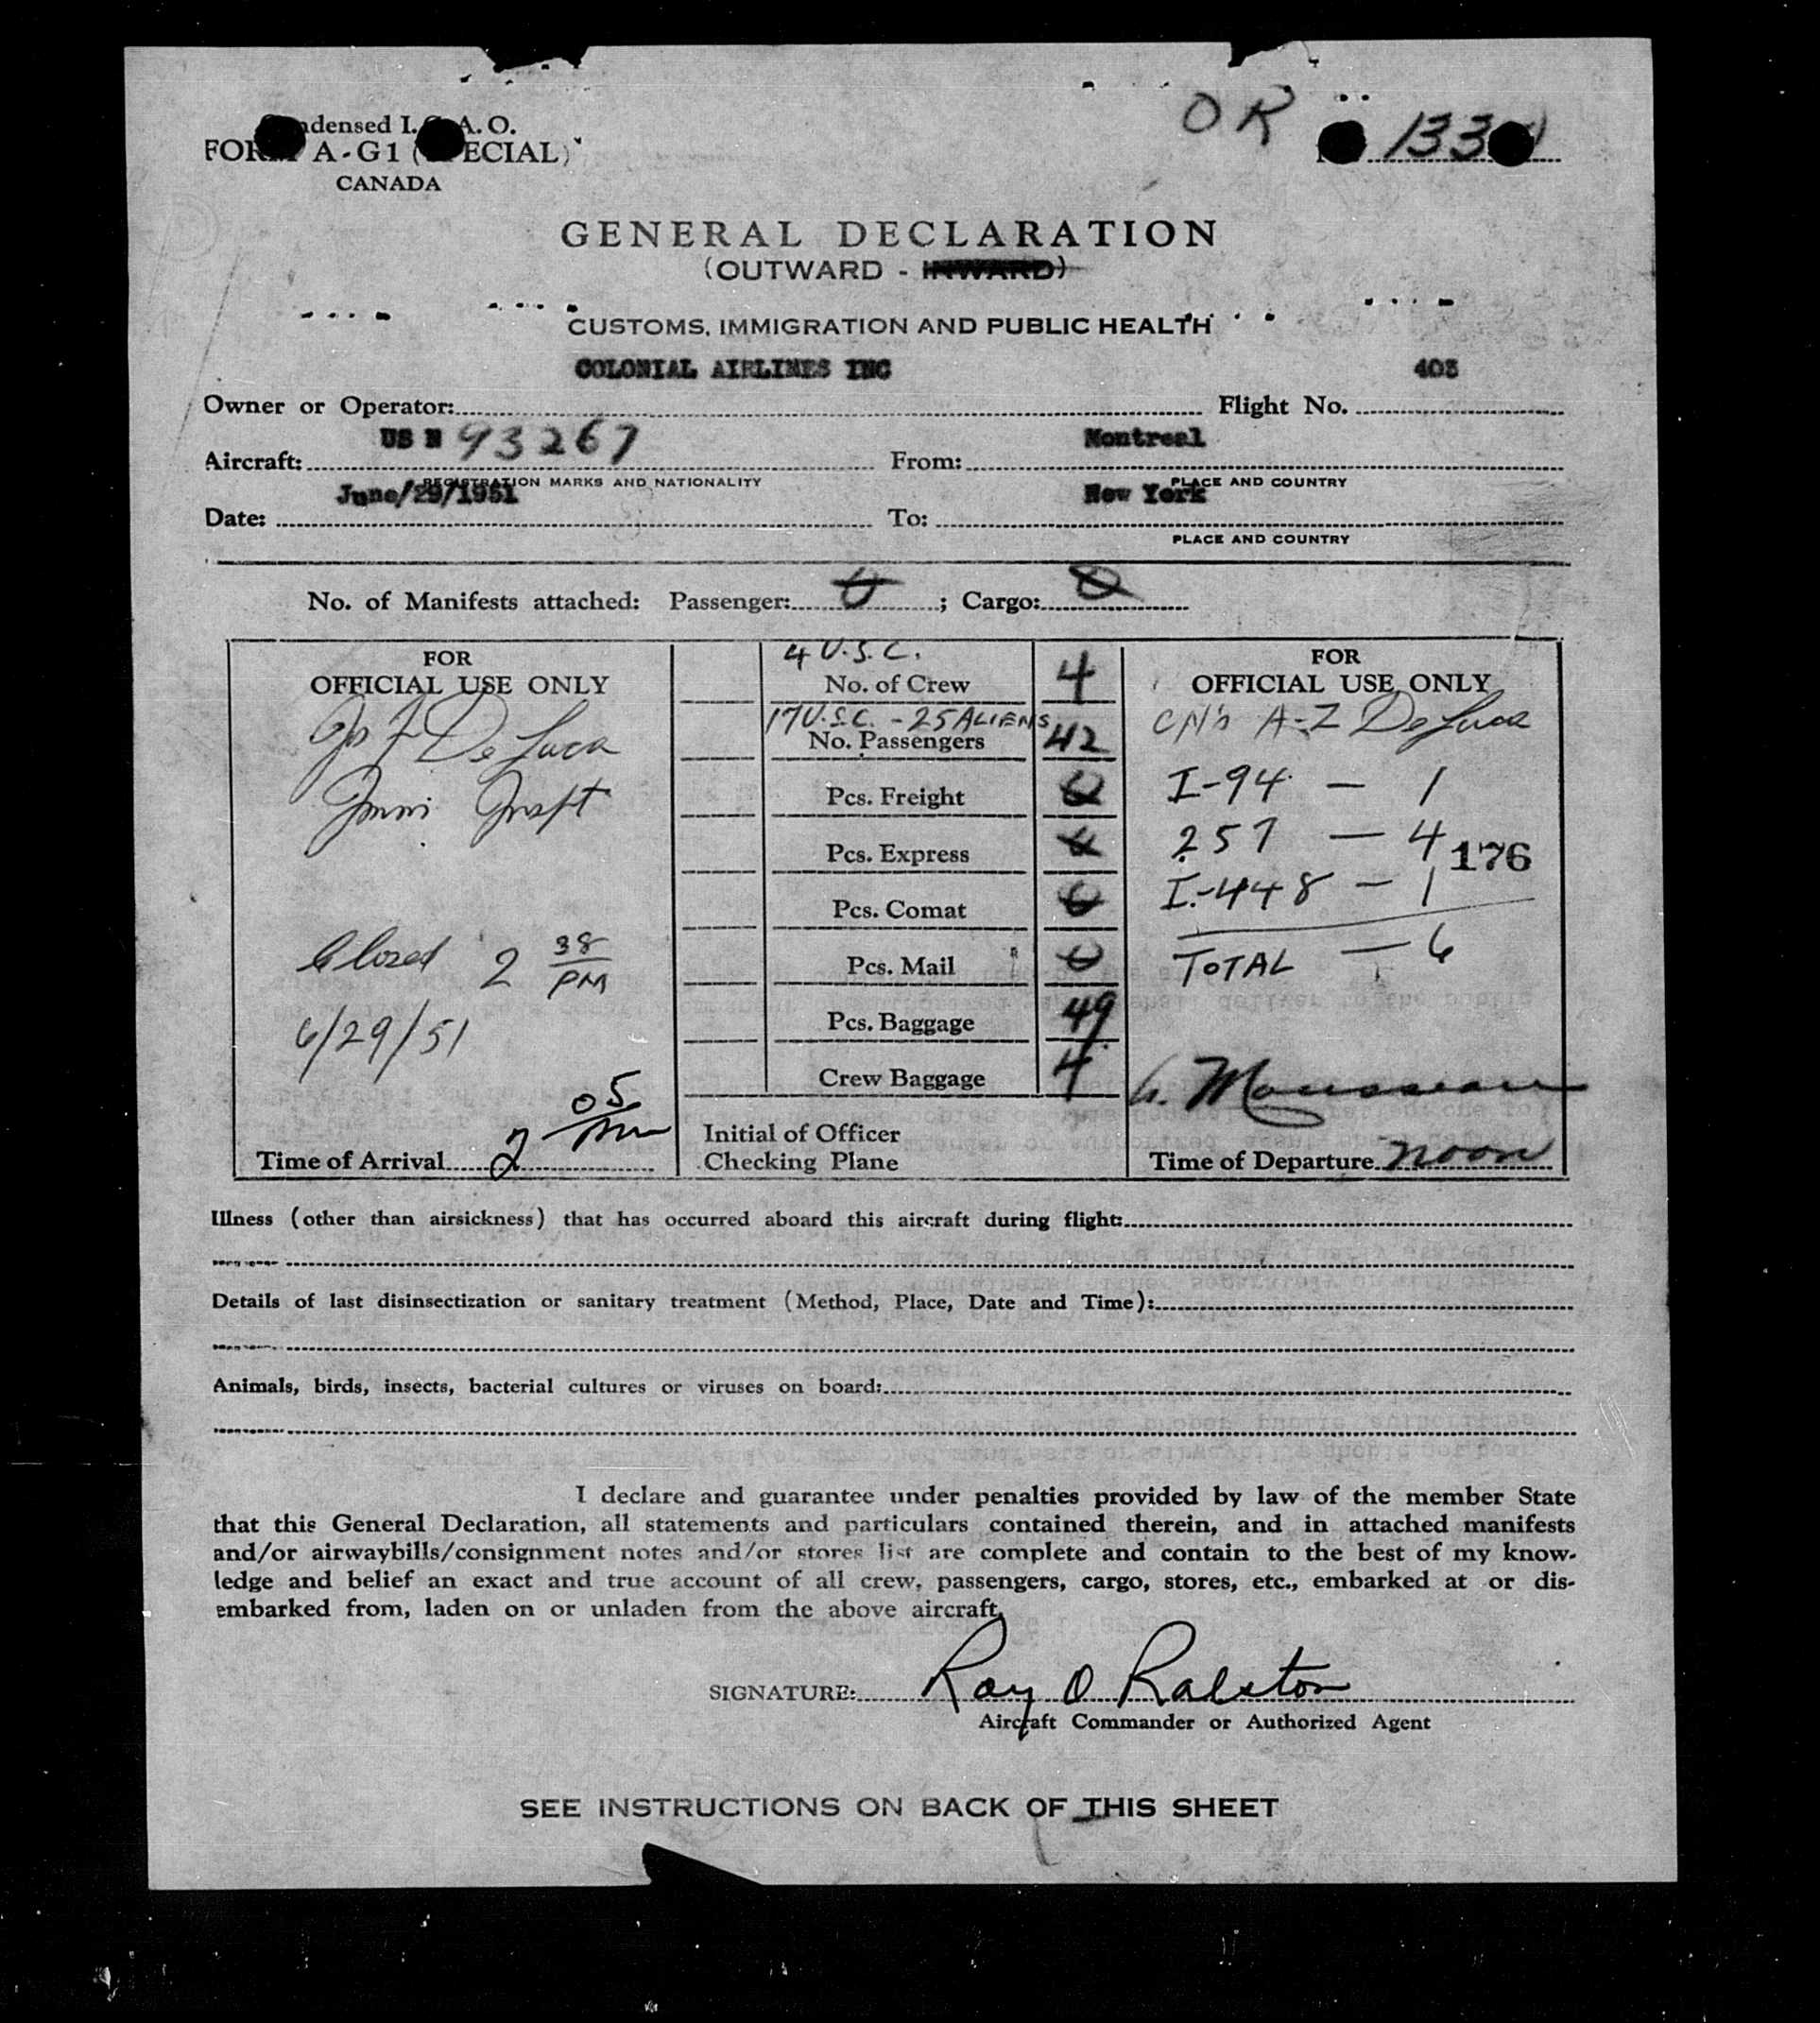 OK
ndensed I. A. O.
133
FOR A-G1 ( ECIAL)
CANADA
GENERAL DECLARATION
(OUTWARD - INWARD)
CUSTOMS, IMMIGRATION AND PUBLIC HEALTH
COLONIAL AIRLINES INC 403
Owner or Operator: Flight No.
US N 93267 Montreal
Aircraft: From:
REGISTRATION MARKS AND NATIONALITY PLACE AND COUNTRY
June/29/1951 New York
Date: To:
PLACE AND COUNTRY
No. of Manifests attached: Passenger: 0; Cargo: 0
FOR
OFFICIAL USE ONLY
De Luca
Closed 2 38 PM
6/29/51
Time of Arrival 2 05
4 U.S.C.
No. of Crew 4
17 U.S.C. - 25 ALIENS
No. Passengers 42
Pcs. Freight 0
Pcs. Express 0
Pcs. Comat 0
Pcs. Mail 0
Pcs. Baggage 49
Crew Baggage 4
Initial of Officer
Checking Plane
FOR
OFFICIAL USE ONLY
CN's A-Z De Luca
I-94 - 1
257 - 4
176
I-448 - 1
TOTAL - 6
Mousseau
Time of Departure noon
Illness (other than airsickness) that has occurred aboard this aircraft during flight:
Details of last disinsectization or sanitary treatment (Method, Place, Date and Time):
Animals, birds, insects, bacterial cultures or viruses on board:
I declare and guarantee under penalties provided by law of the member State
that this General Declaration, all statements and particulars contained therein, and in attached manifests
and/or airwaybills/consignment notes and/or stores list are complete and contain to the best of my know-
ledge and belief an exact and true account of all crew, passengers, cargo, stores, etc., embarked at or dis-
embarked from, laden on or unladen from the above aircraft.
SIGNATURE: Ray O Ralston
Aircraft Commander or Authorized Agent
SEE INSTRUCTIONS ON BACK OF THIS SHEET